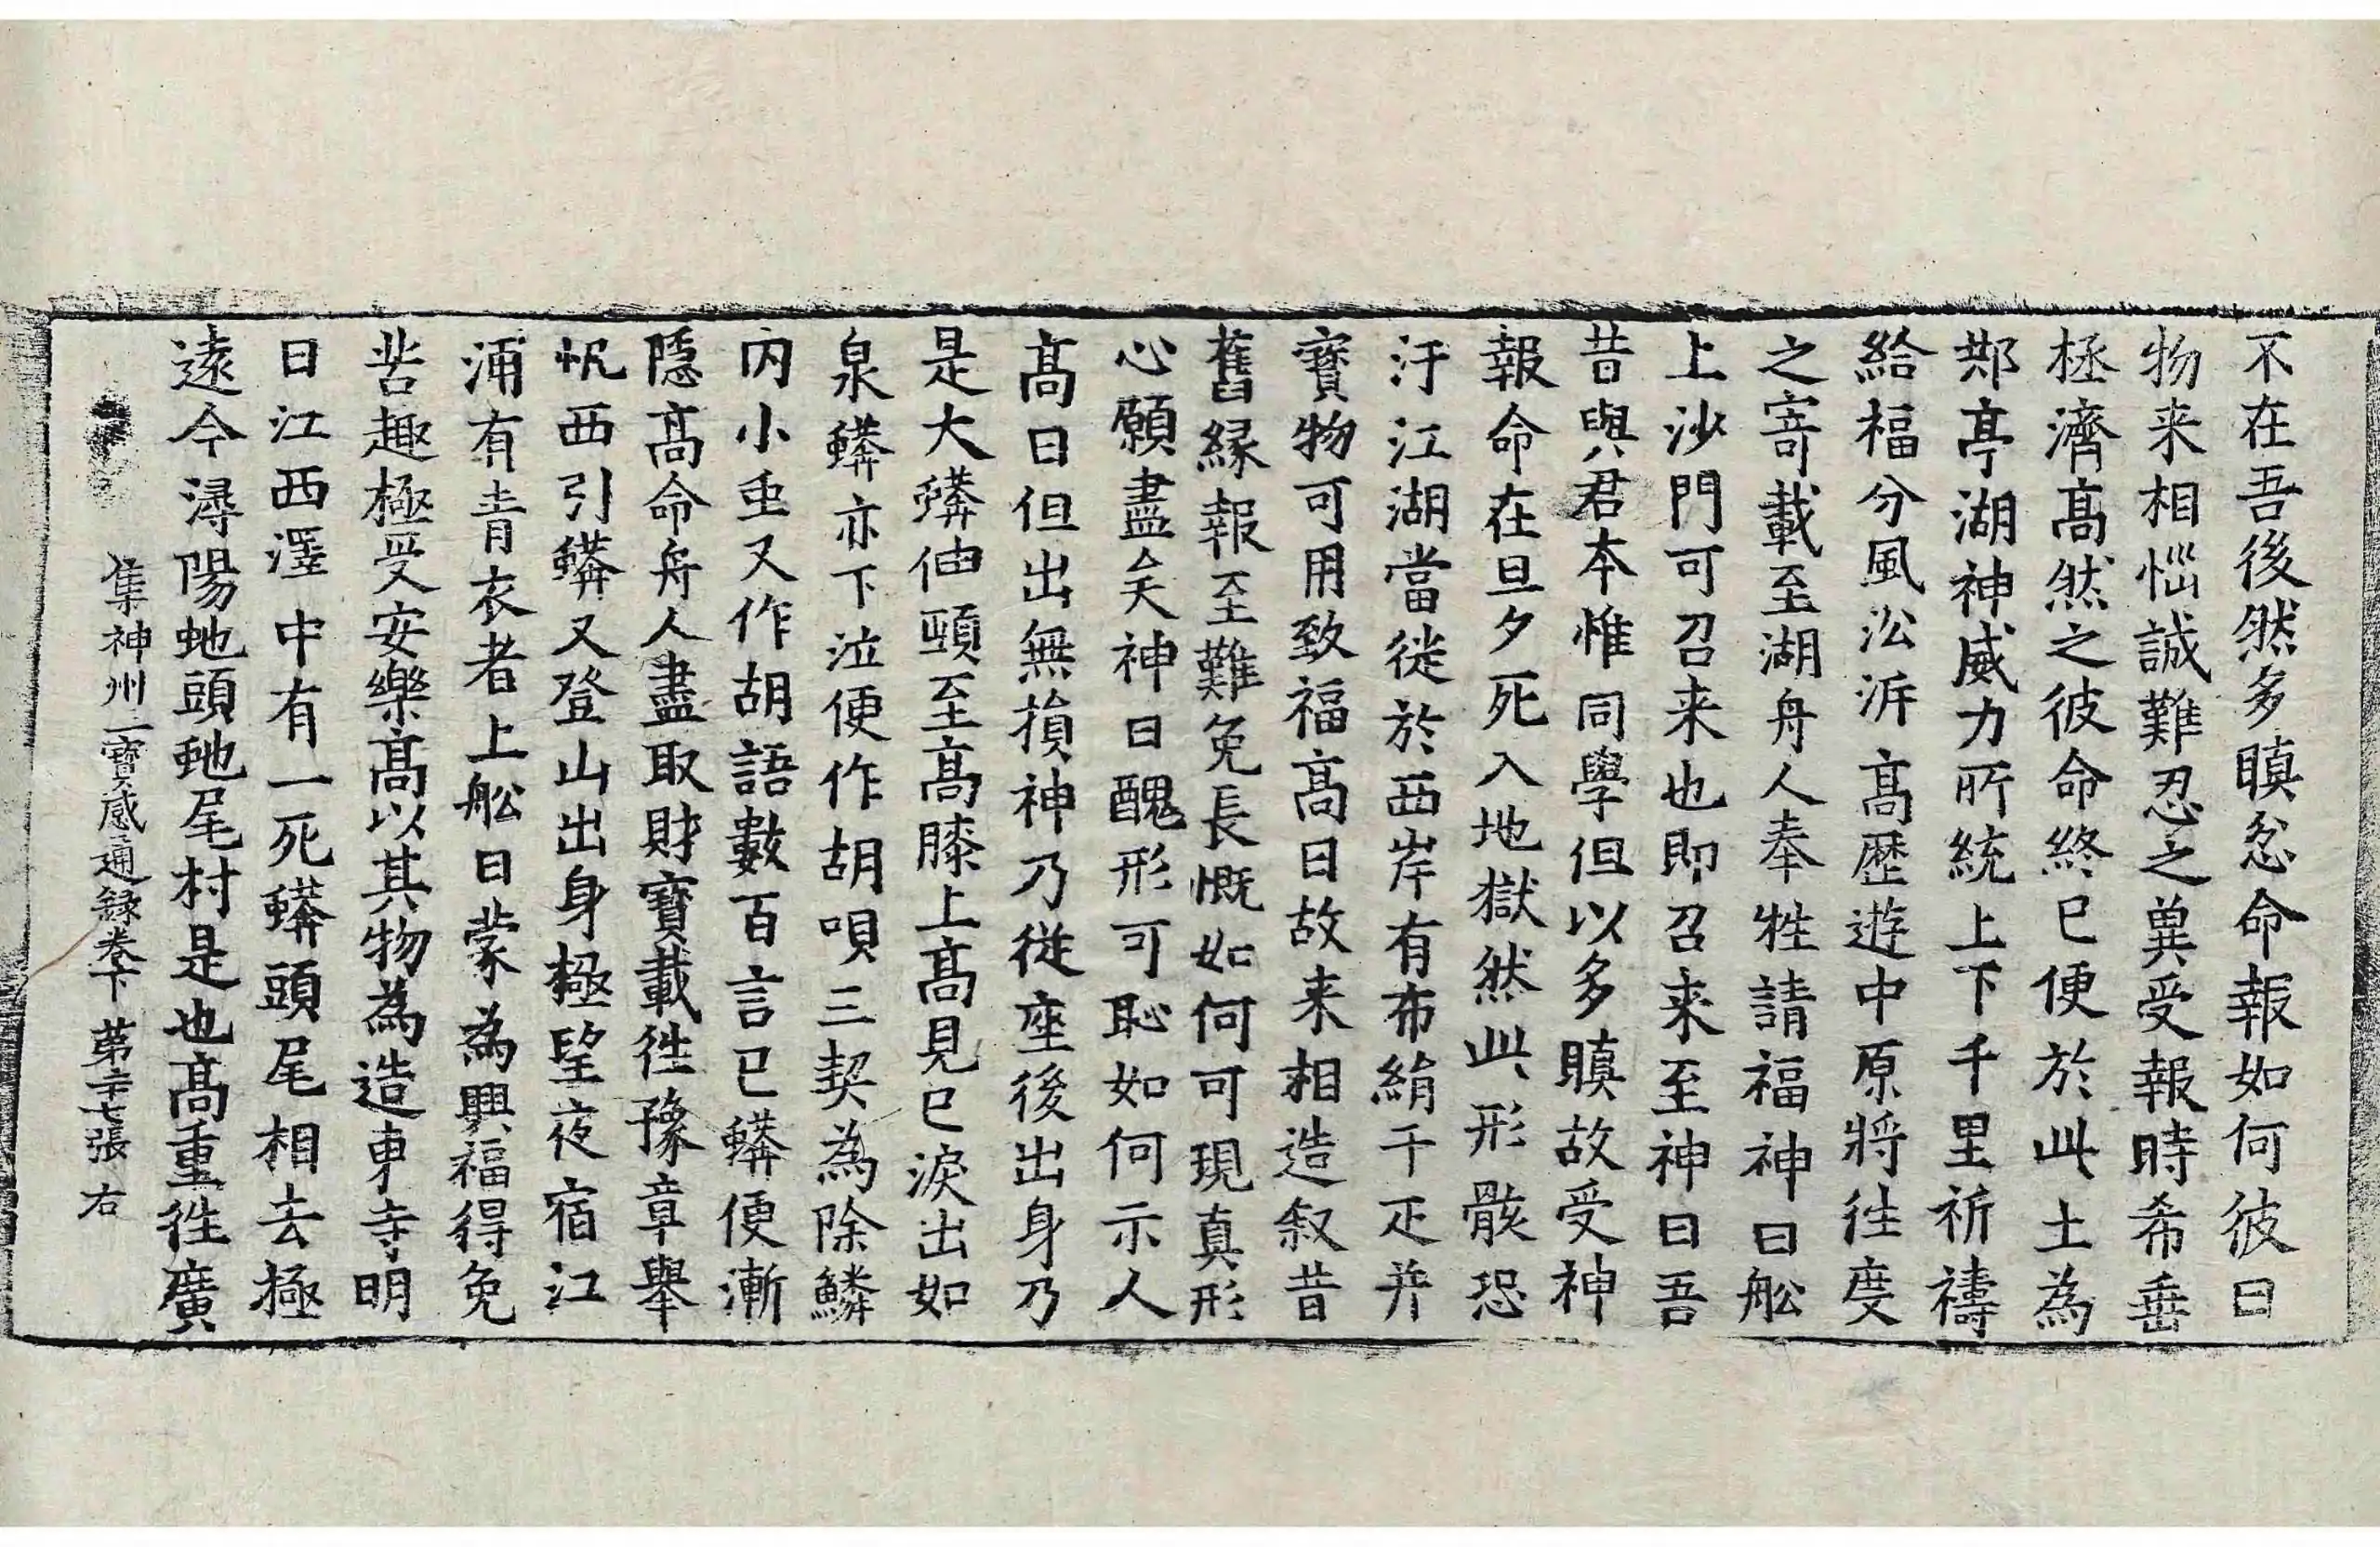 不在吾後然多瞋忿命報如何彼曰
物来相惱誠難忍之異受報時希垂
拯濟髙然之彼命終已便於此土為
䢼亭湖神威力所統上下千里祈禱
給福分風㳂泝髙歷遊中原將往度
之寄載至湖舟人奉牲請福神曰舩
上沙門可召来也即召来至神曰吾
昔與君本惟同學但以多瞋故受神
報命在旦夕死入地獄然此形骸恐
汙江湖當徙於西岸有布絹千疋并
寶物可用致福髙曰故来相造叙昔
舊縁報至難免長慨如何可現真形
心願盡矣神曰醜形可恥如何示人
髙曰但出無損神乃從座後出身乃
是大蟒伸頭至髙膝上髙見已淚出如
泉蟒亦下泣便作胡唄三契為除鱗
内小虫又作胡語數百言已蟒便漸
隱髙命舟人盡取財寶載往豫章舉
帆西引蟒又登山出身極望夜宿江
浦有青衣者上舩曰蒙為興福得免
苦趣極受安樂髙以其物為造東寺明
日江西澤中有一死蟒頭尾相去極
遠今潯陽虵頭虵尾村是也髙重往廣
集神州三寶感通録卷下 苐二十七張 右